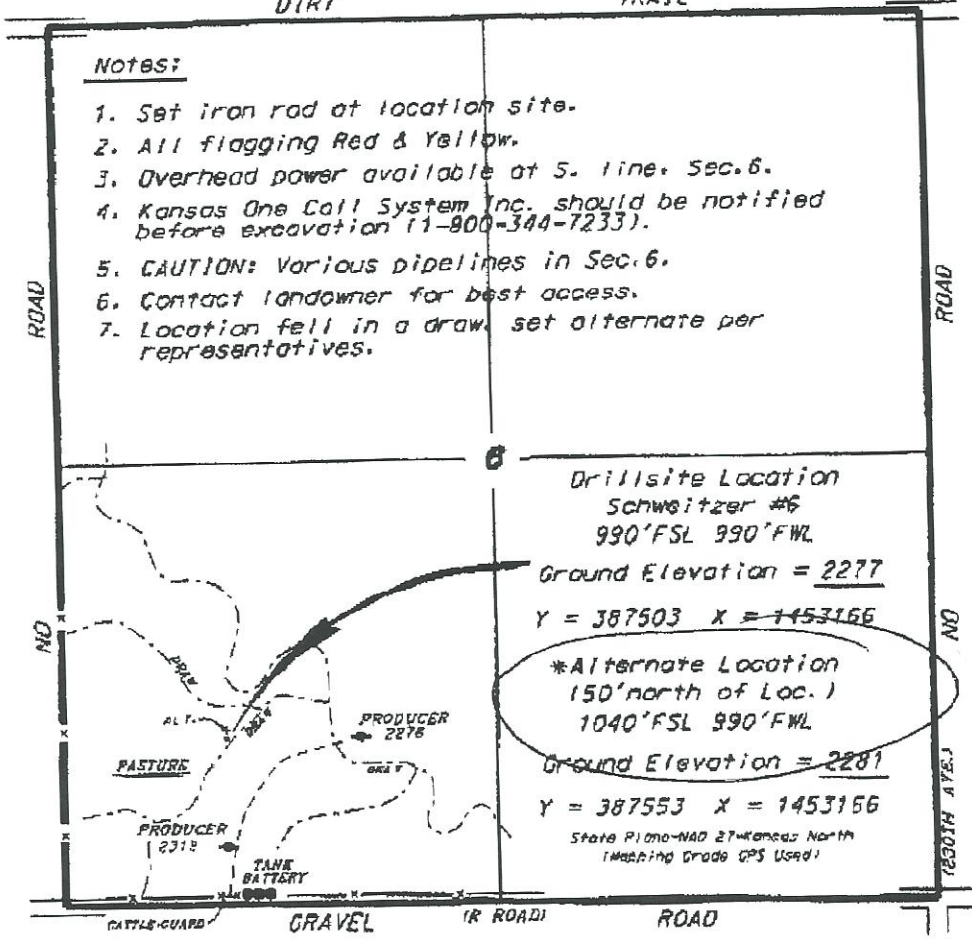 DIRT TRAIL
Notes:
1. Set iron rod at location site.
2. All flagging Red & Yellow.
3. Overhead power available at S. line. Sec.6.
4. Kansas One Call System Inc. should be notified
before excavation (1-800-344-7233).
5. CAUTION: Various pipelines in Sec.6.
6. Contact landowner for best access.
7. Location fell in a draw, set alternate per
representatives.
ROAD
ROAD
6
Drillsite Location
Schweitzer #6
990'FSL 990'FWL
Ground Elevation = 2277
Y = 387503 X = 1453166
NO
NO
*Alternate Location
(50'north of Loc.)
1040'FSL 990'FWL
Ground Elevation = 2281
Y = 387553 X = 1453166
State Plane-NAD 27-Kansas North
(Mapping Grade GPS Used)
DRAW
ALT.
DRAW
PRODUCER
2276
PASTURE
DRAW
PRODUCER
TANK
BATTERY
(230TH AVE.)
CATTLE-GUARD
GRAVEL (R ROAD) ROAD